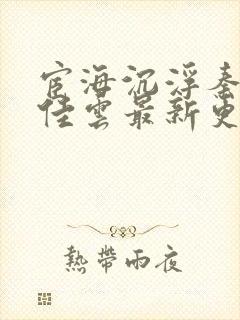 宦海沉浮秦
佳雲最新更
熱帶雨夜